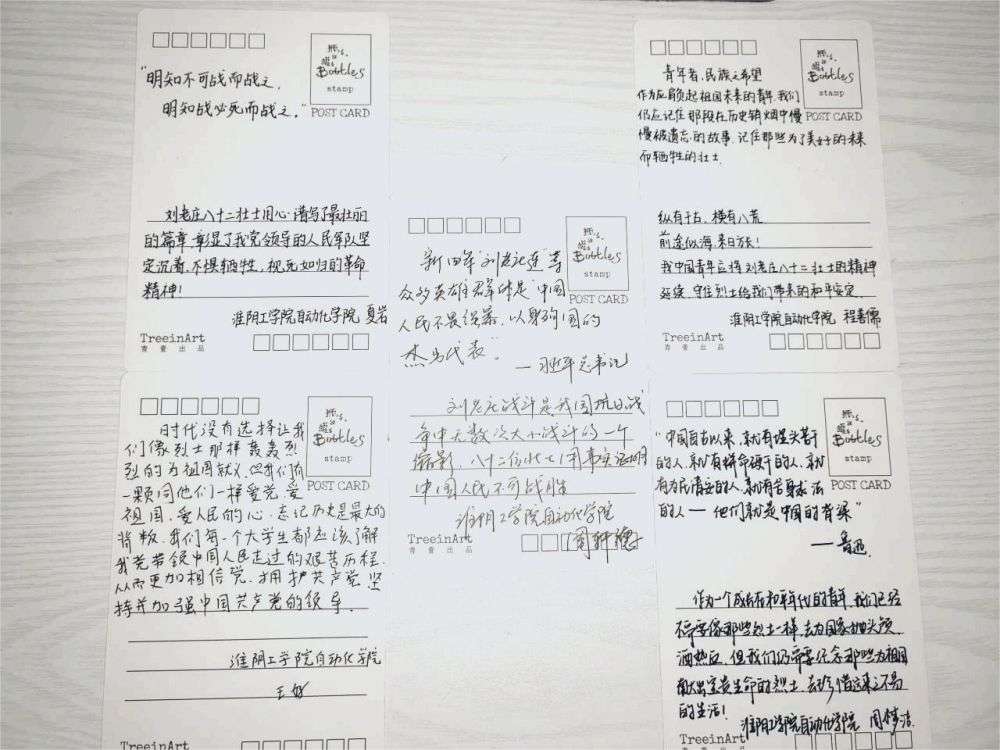 Bottles
stamp
POST CARD
"明知不可战而战之,
明知战必死而战之。"
刘老庄八十二壮士用心谱写了最壮丽
的篇章,彰显了我党领导的人民军队坚
定沉着、不惧牺牲,视死如归的革命
精神!
淮阴工学院自动化学院 夏岩
TreeinArt
青萱出品
Bottles
stamp
POST CARD
时代没有选择让我
们像烈士那样轰轰烈
烈的为祖国献义,但我们有
一颗同他们一样爱党、爱
祖国、爱人民的心。忘记历史是最大的
背叛,我们每一个大学生都应该了解
我党带领中国人民走过的艰苦历程,
从而更加相信党、拥护共产党,坚
持并加强中国共产党的领导。
淮阴工学院自动化学院
王
TreeinArt
Bottles
stamp
POST CARD
新四军"刘老庄连"等
众多英雄群体是"中国
人民不畏强暴、以身殉国的
杰出代表"。
—习近平总书记
刘老庄战斗是我国抗日战
争中无数次大小战斗的一个
缩影,八十二位壮士用事实证明
中国人民不可战胜
淮阴工学院自动化学院
TreeinArt
青萱出品
周轩
Bottles
stamp
POST CARD
青年者,民族之希望
作为应肩负起祖国未来的青年,我们
仍应记住那段在历史销烟中慢
慢被遗忘的故事,记住那些为了美好的未来
而牺牲的壮士
纵有千古,横有八荒
前途似海,来日方长!
我中国青年应将刘老庄八十二壮士的精神
延续,守住烈士给我们带来的和平安定
淮阴工学院自动化学院 程善儒
TreeinArt
青萱出品
Bottles
stamp
POST CARD
"中国自古以来,就有埋头苦干
的人,就有拼命硬干的人,就
有为民请命的人,就有舍身求法
的人——他们就是中国的脊梁"
——鲁迅
作为一个成长在和平年代的青年,我们已经
不需要像那些烈士一样去为国家抛头颅,
洒热血,但我们仍需要纪念那些为祖国
献出宝贵生命的烈士,去珍惜这来之不易
的生活!
淮阴工学院自动化学院 周
TreeinArt